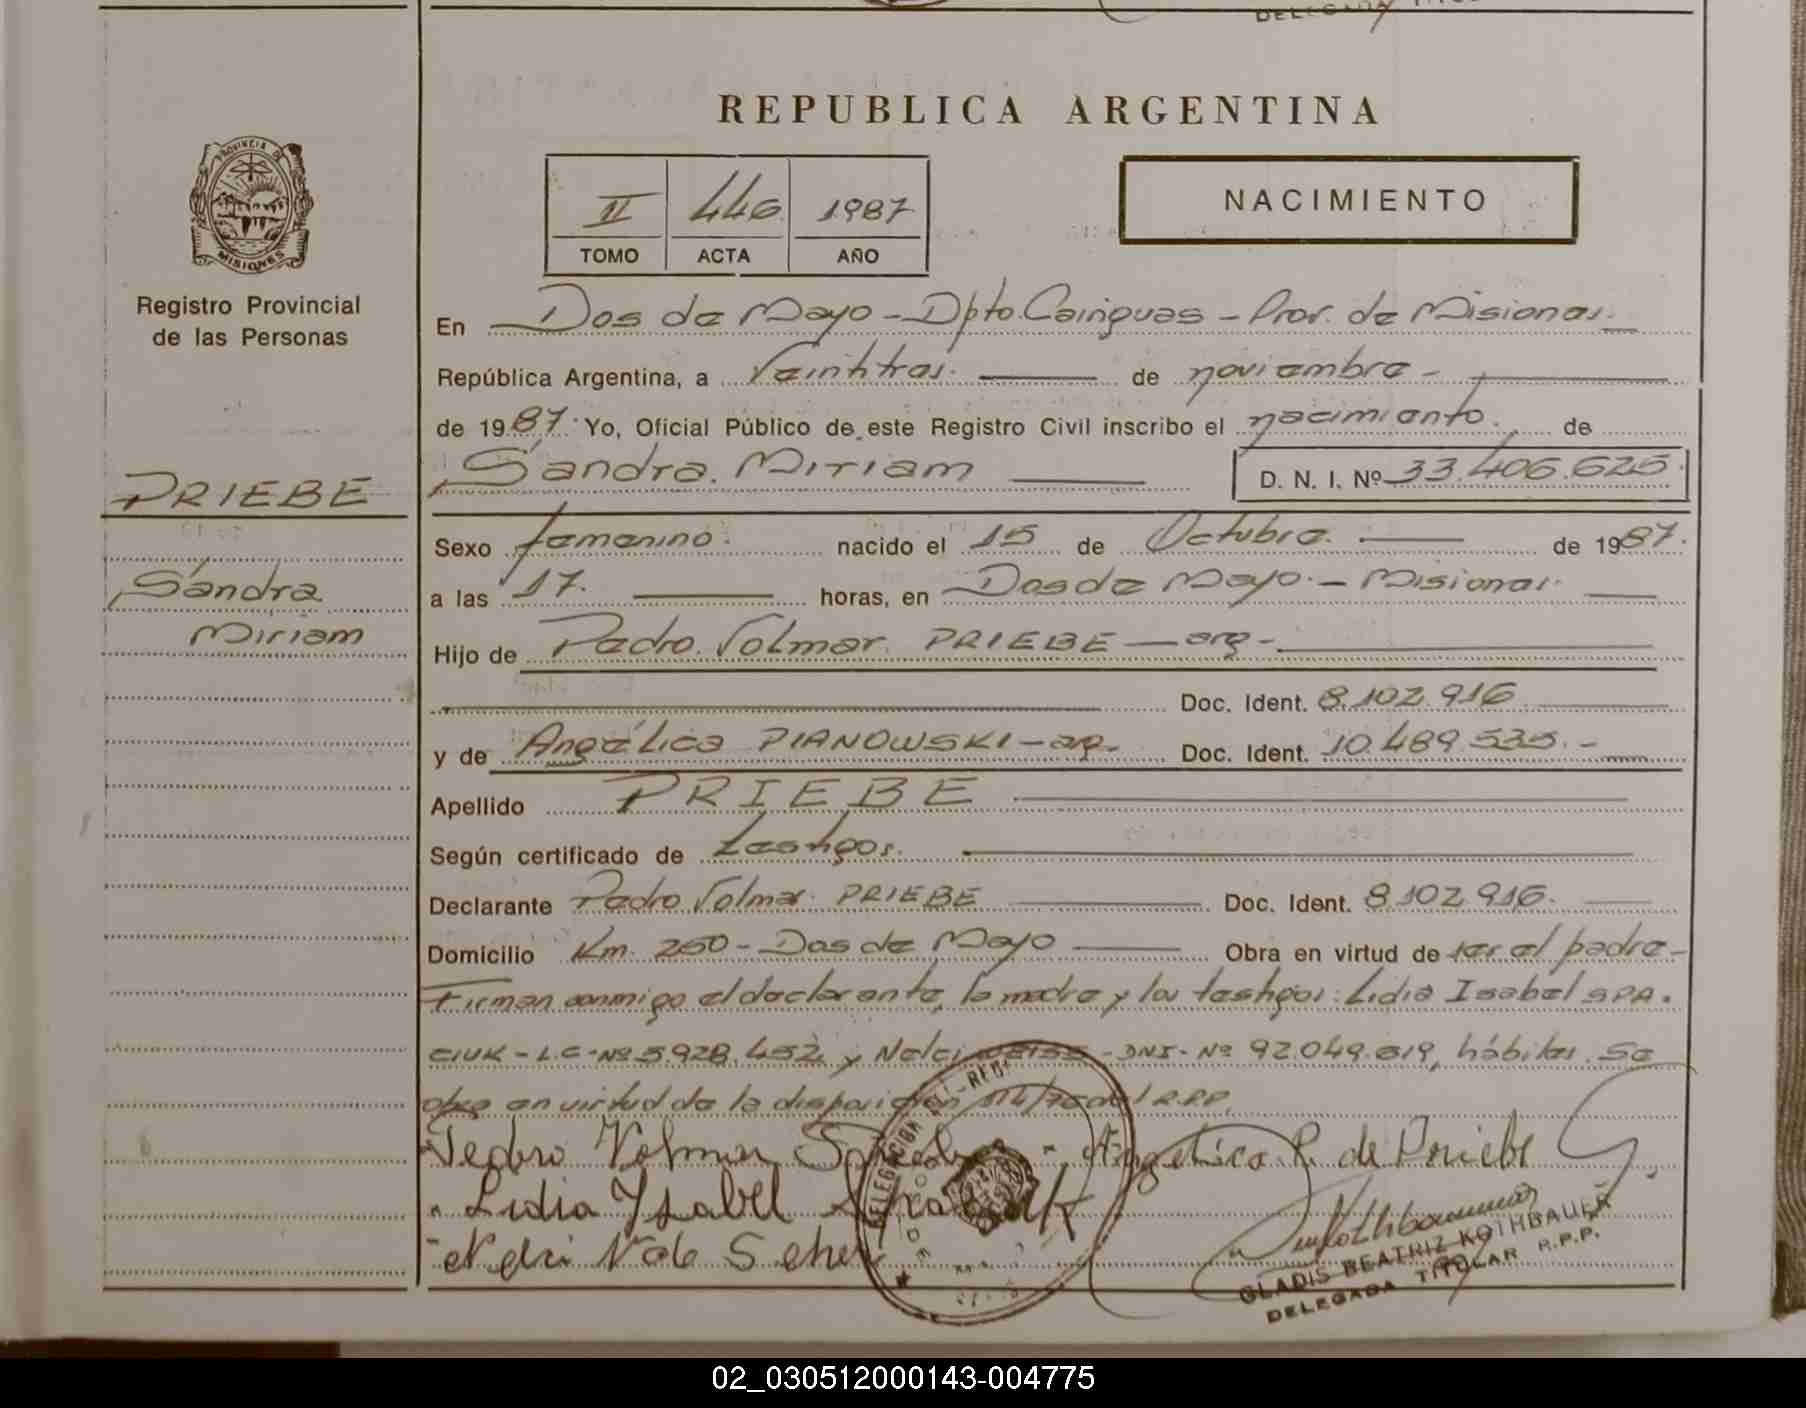 REPUBLICA ARGENTINA
PROVINCIA DE
MISIONES
Registro Provincial
de las Personas
II 446 1987
TOMO ACTA AÑO
NACIMIENTO
En Dos de Mayo - Dpto. Cainguas - Prov. de Misiones.
República Argentina, a Veintitres. de noviembre -
de 1987. Yo, Oficial Público de este Registro Civil inscribo el nacimiento. de
Sandra. Miriam D. N. I. Nº 33.406.625.
PRIEBE
Sandra
Miriam
Sexo femenino. nacido el 15 de Octubre. de 1987.
a las 17. horas, en Dos de Mayo. - Misiones.
Hijo de Pedro. Volmar. PRIEBE - arg -
Doc. Ident. 8.102.916
y de Angélica PIANOWSKI - arg. Doc. Ident. 10.489.535. -
Apellido PRIEBE
Según certificado de testigos.
Declarante Pedro Volmar. PRIEBE Doc. Ident. 8.102.916.
Domicilio Km. 250 - Dos de Mayo Obra en virtud de ser el padre -
Firman conmigo el declarante, la madre y los testigos: Lidia Isabel SPA.
CIUK - L.C - Nº 5.928.452, y Nelci - DNI - Nº 92.049.619, hábiles. Se
obra en virtud de la disposición R.P.P.
Pedro Volmar - Angelica P. de Priebe
" Lidia Ysabel
GLADIS BEATRIZ KOTHBAUER
DELEGADA TITULAR R.P.P.
02_030512000143-004775